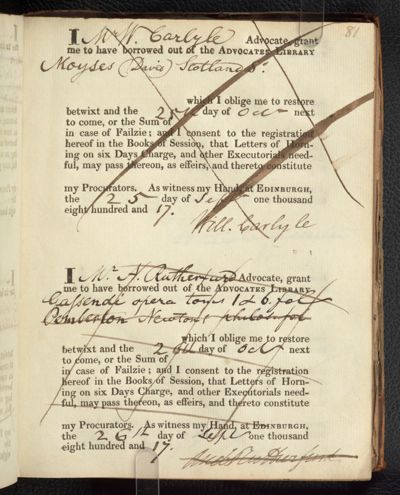 81
I Mr W. Carlyle Advocate, grant
me to have borrowed out of the ADVOCATES LIBRARY
Moyses (David) Scotland.
which I oblige me to restore
betwixt and the 25th day of Oct next
to come, or the Sum of
in case of Failzie; and I consent to the registration
hereof in the Books of Session, that Letters of Horn-
ing on six Days Charge, and other Executorials need-
ful, may pass thereon, as effeirs, and thereto constitute
my Procurators. As witness my Hand, at EDINBURGH,
the 25 day of Sept one thousand
eight hundred and 17.
Will. Carlyle
I Mr A. Rutherfurd Advocate, grant
me to have borrowed out of the ADVOCATES LIBRARY
Gassendi opera toms 1 & 6. fol
Pemberton Newtons philosophy
which I oblige me to restore
betwixt and the 26th day of Oct next
to come, or the Sum of
in case of Failzie; and I consent to the registration
hereof in the Books of Session, that Letters of Horn-
ing on six Days Charge, and other Executorials need-
ful, may pass thereon, as effeirs, and thereto constitute
my Procurators. As witness my Hand, at EDINBURGH,
the 26th day of Sept one thousand
eight hundred and 17.
Rutherfurd